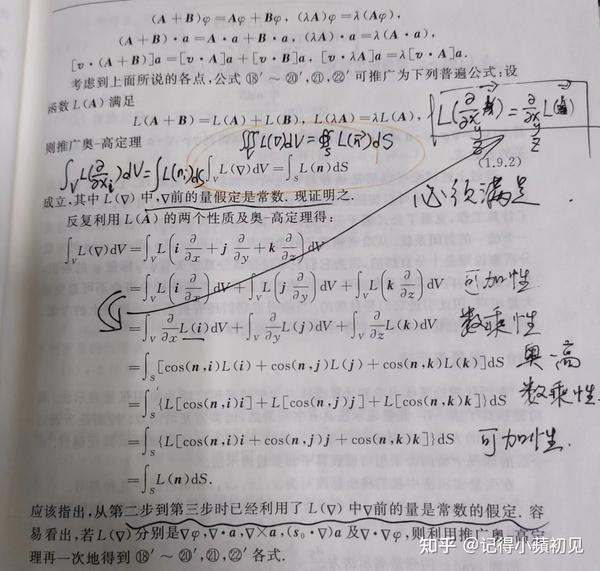 (A + B)φ = Aφ + Bφ, (λA)φ = λ(Aφ),
(A + B)·a = A·a + B·a, (λA)·a = λ(A·a),
[v·(A + B)]a = [v·A]a + [v·B]a, [v·λA]a = λ[v·A]a.
考虑到上面所说的各点,公式 ⑱′ ～ ⑳′,㉑,㉒′ 可推广为下列普遍公式:设
函数 L(A) 满足
L(A + B) = L(A) + L(B), L(λA) = λL(A),
则推广奥-高定理
∫_V L(∇)dV = ∫_S L(n)dS
(1.9.2)
必须满足
成立,其中 L(∇) 中,∇前的量假定是常数. 现证明之.
反复利用 L(A) 的两个性质及奥-高定理得:
∫_V L(∇)dV = ∫_V L(i ∂/∂x + j ∂/∂y + k ∂/∂z)dV
= ∫_V L(i ∂/∂x)dV + ∫_V L(j ∂/∂y)dV + ∫_V L(k ∂/∂z)dV 可加性
= ∫_V ∂/∂x L(i)dV + ∫_V ∂/∂y L(j)dV + ∫_V ∂/∂z L(k)dV 数乘性
= ∫_S [cos(n,i)L(i) + cos(n,j)L(j) + cos(n,k)L(k)]dS 奥-高
= ∫_S {L[cos(n,i)i] + L[cos(n,j)j] + L[cos(n,k)k]}dS 数乘性
= ∫_S {L[cos(n,i)i + cos(n,j)j + cos(n,k)k]}dS 可加性.
= ∫_S L(n)dS.
应该指出,从第二步到第三步时已经利用了 L(∇) 中∇前的量是常数的假定. 容
易看出,若 L(∇) 分别是∇φ,∇·a,∇×a,(s₀·∇)a 及∇·∇φ,则利用推广奥-高定
理再一次地得到 ⑱′ ～ ⑳′,㉑,㉒′ 各式.
知乎 @记得小蘋初见